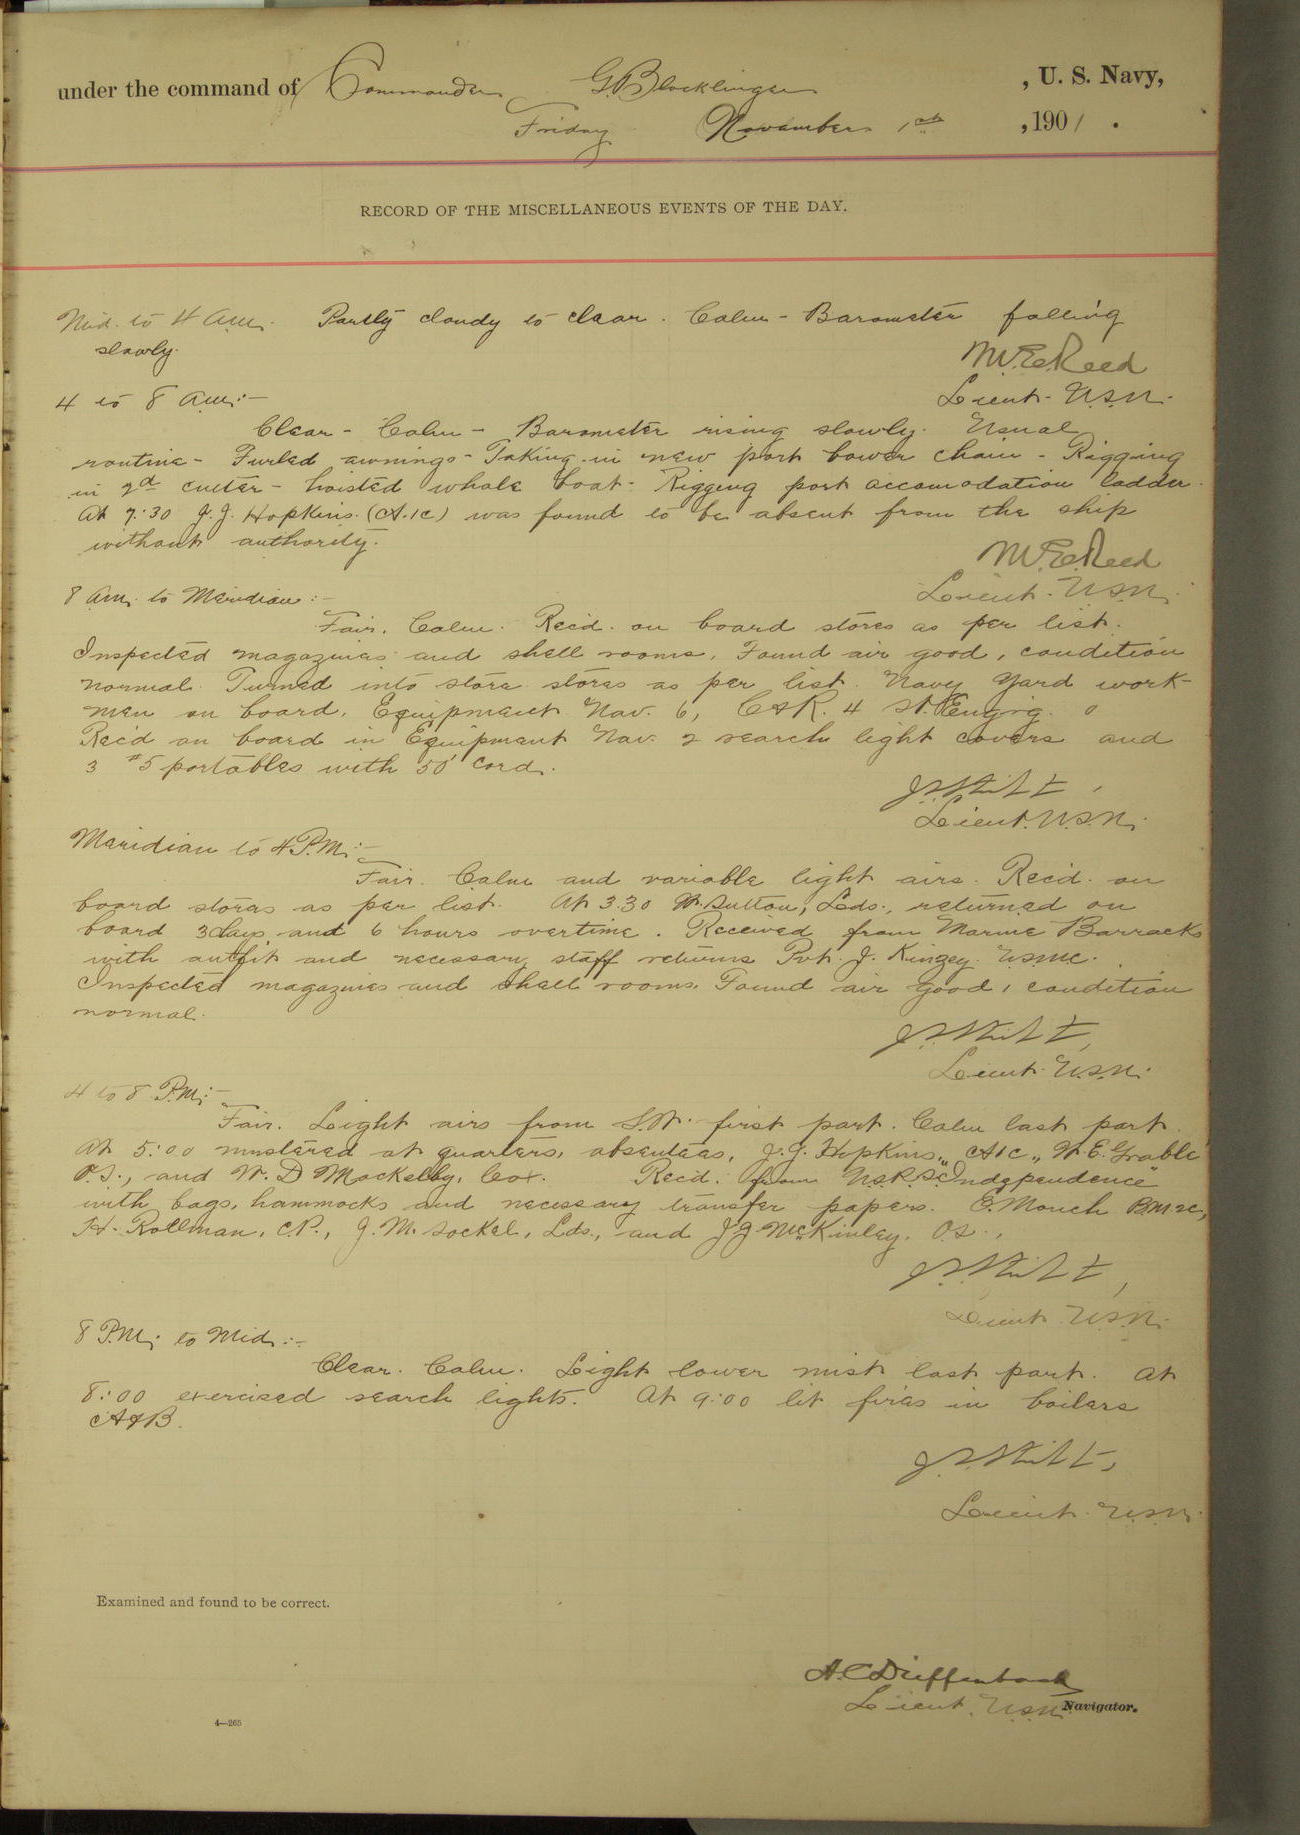 under the command of Commander G. Blocklinger , U. S. Navy,
Friday November 1st , 1901 .
RECORD OF THE MISCELLANEOUS EVENTS OF THE DAY.
Mid. to 4 a.m. Partly cloudy to clear. Calm - Barometer falling
slowly.
M.E. Reed
Lieut. U.S.N.
4 to 8 a.m:-
Clear - Calm - Barometer rising slowly. Usual
routine - Furled awnings - Taking in new port bower chain - Rigging
in 2d cutter - hoisted whale boat - Rigging port accomodation ladder.
At 7:30 J.J. Hopkins (A.1c) was found to be absent from the ship
without authority.
M.E. Reed
Lieut. U.S.N.
8 a.m. to Meridian:-
Fair. Calm. Rec'd. on board stores as per list.
Inspected magazines and shell rooms. Found air good, condition
normal. Turned into store stores as per list. Navy Yard work-
men on board, Equipment Nav. 6, C&R. 4 St. Eng'r'g. 0
Rec'd on board in Equipment Nav. 2 search light covers and
3 #5 portables with 50' cord.
Lieut. U.S.N.
Meridian to 4 P.M:-
Fair. Calm and variable light airs. Rec'd. on
board stores as per list. At 3.30 W. Sutton, Lds., returned on
board 3 days and 6 hours overtime. Received from Marine Barracks
with outfit and necessary staff returns Pvt. J. Kinzey U.S.M.C.
Inspected magazines and shell rooms. Found air good, condition
normal.
Lieut. U.S.N.
4 to 8 P.M:-
Fair. Light airs from S.W. first part. Calm last part.
At 5:00 mustered at quarters, absentees, J.J. Hopkins, A1c, W.E. Grable
O.S., and W.D. Mackelby, Cox. Rec'd. from U.S.R.S. "Independence"
with bags, hammocks and necessary transfer papers. E. Mouch B.M.2c,
H. Rollman, C.P., J.M. Sockel, Lds., and J.J. McKinley, O.S.,
Lieut. U.S.N.
8 P.M. to Mid:-
Clear. Calm. Light lower mist last part. At
8:00 exercised search lights. At 9:00 lit fires in boilers
A & B.
Lieut. U.S.N.
Examined and found to be correct.
A.C. Dieffenbach
Lieut. U.S.N. Navigator.
4—265